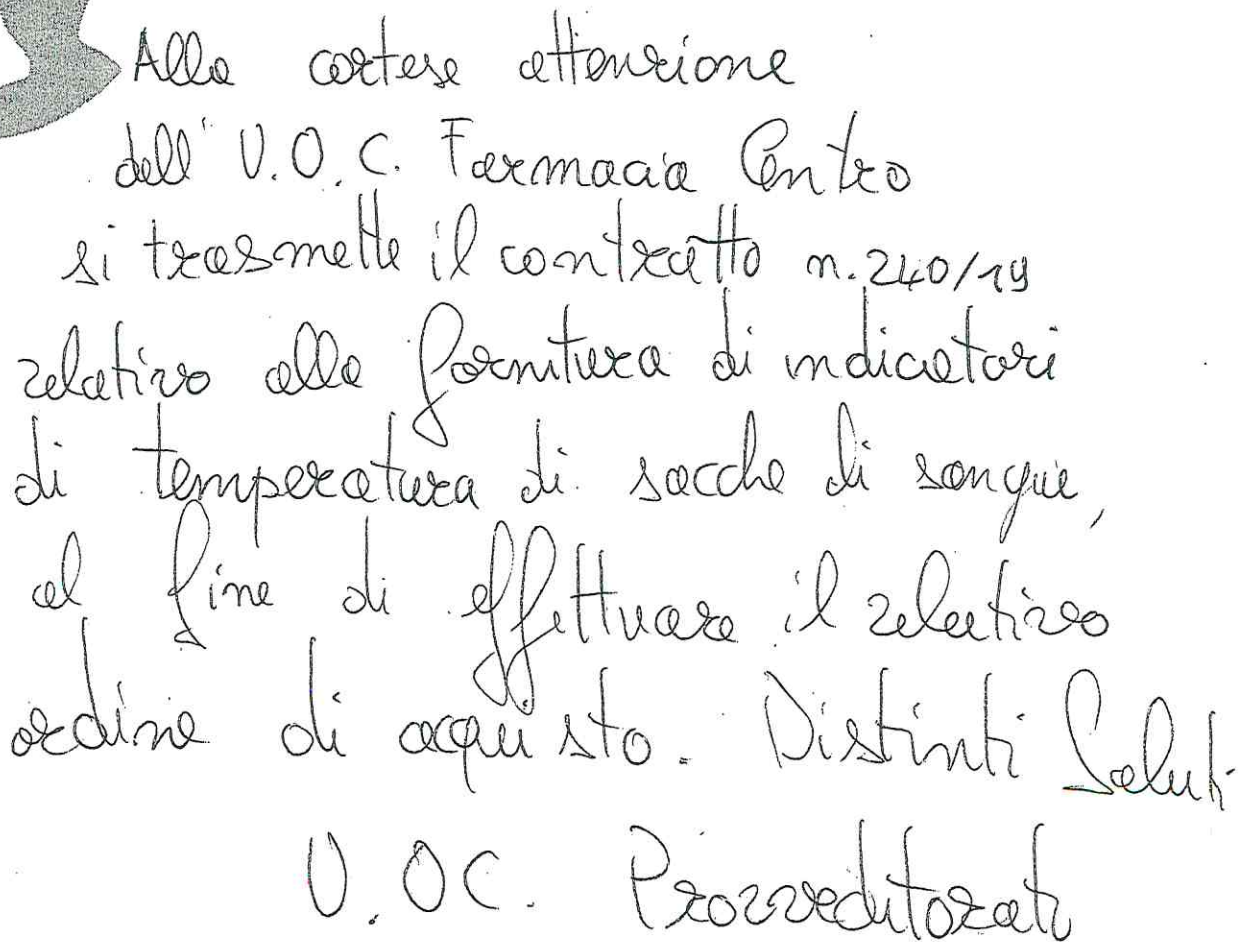 Alla cortese attenzione
dell' U.O.C. Farmacia Centro
si trasmette il contratto n. 240/19
relativo alla fornitura di indicatori
di temperatura di sacche di sangue,
al fine di effettuare il relativo
ordine di acquisto. Distinti Saluti
U.OC. Provveditorato